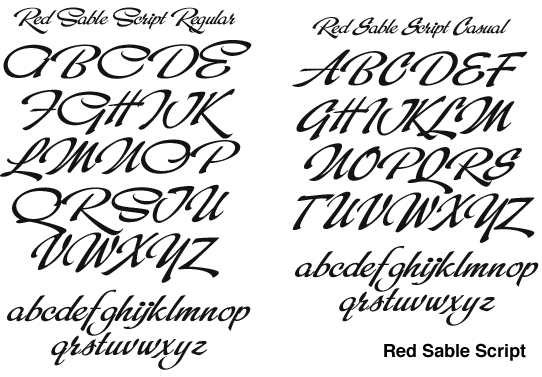 Red Sable Script Regular
ABCDE
FGHIJK
LMNOP
QRSTU
VWXYZ
abcdefghijklmnop
qrstuvwxyz
Red Sable Script Casual
ABCDEF
GHIJKLM
NOPQRS
TUVWX
YZ
abcdefghijklmnop
qrstuvwxyz
Red Sable Script